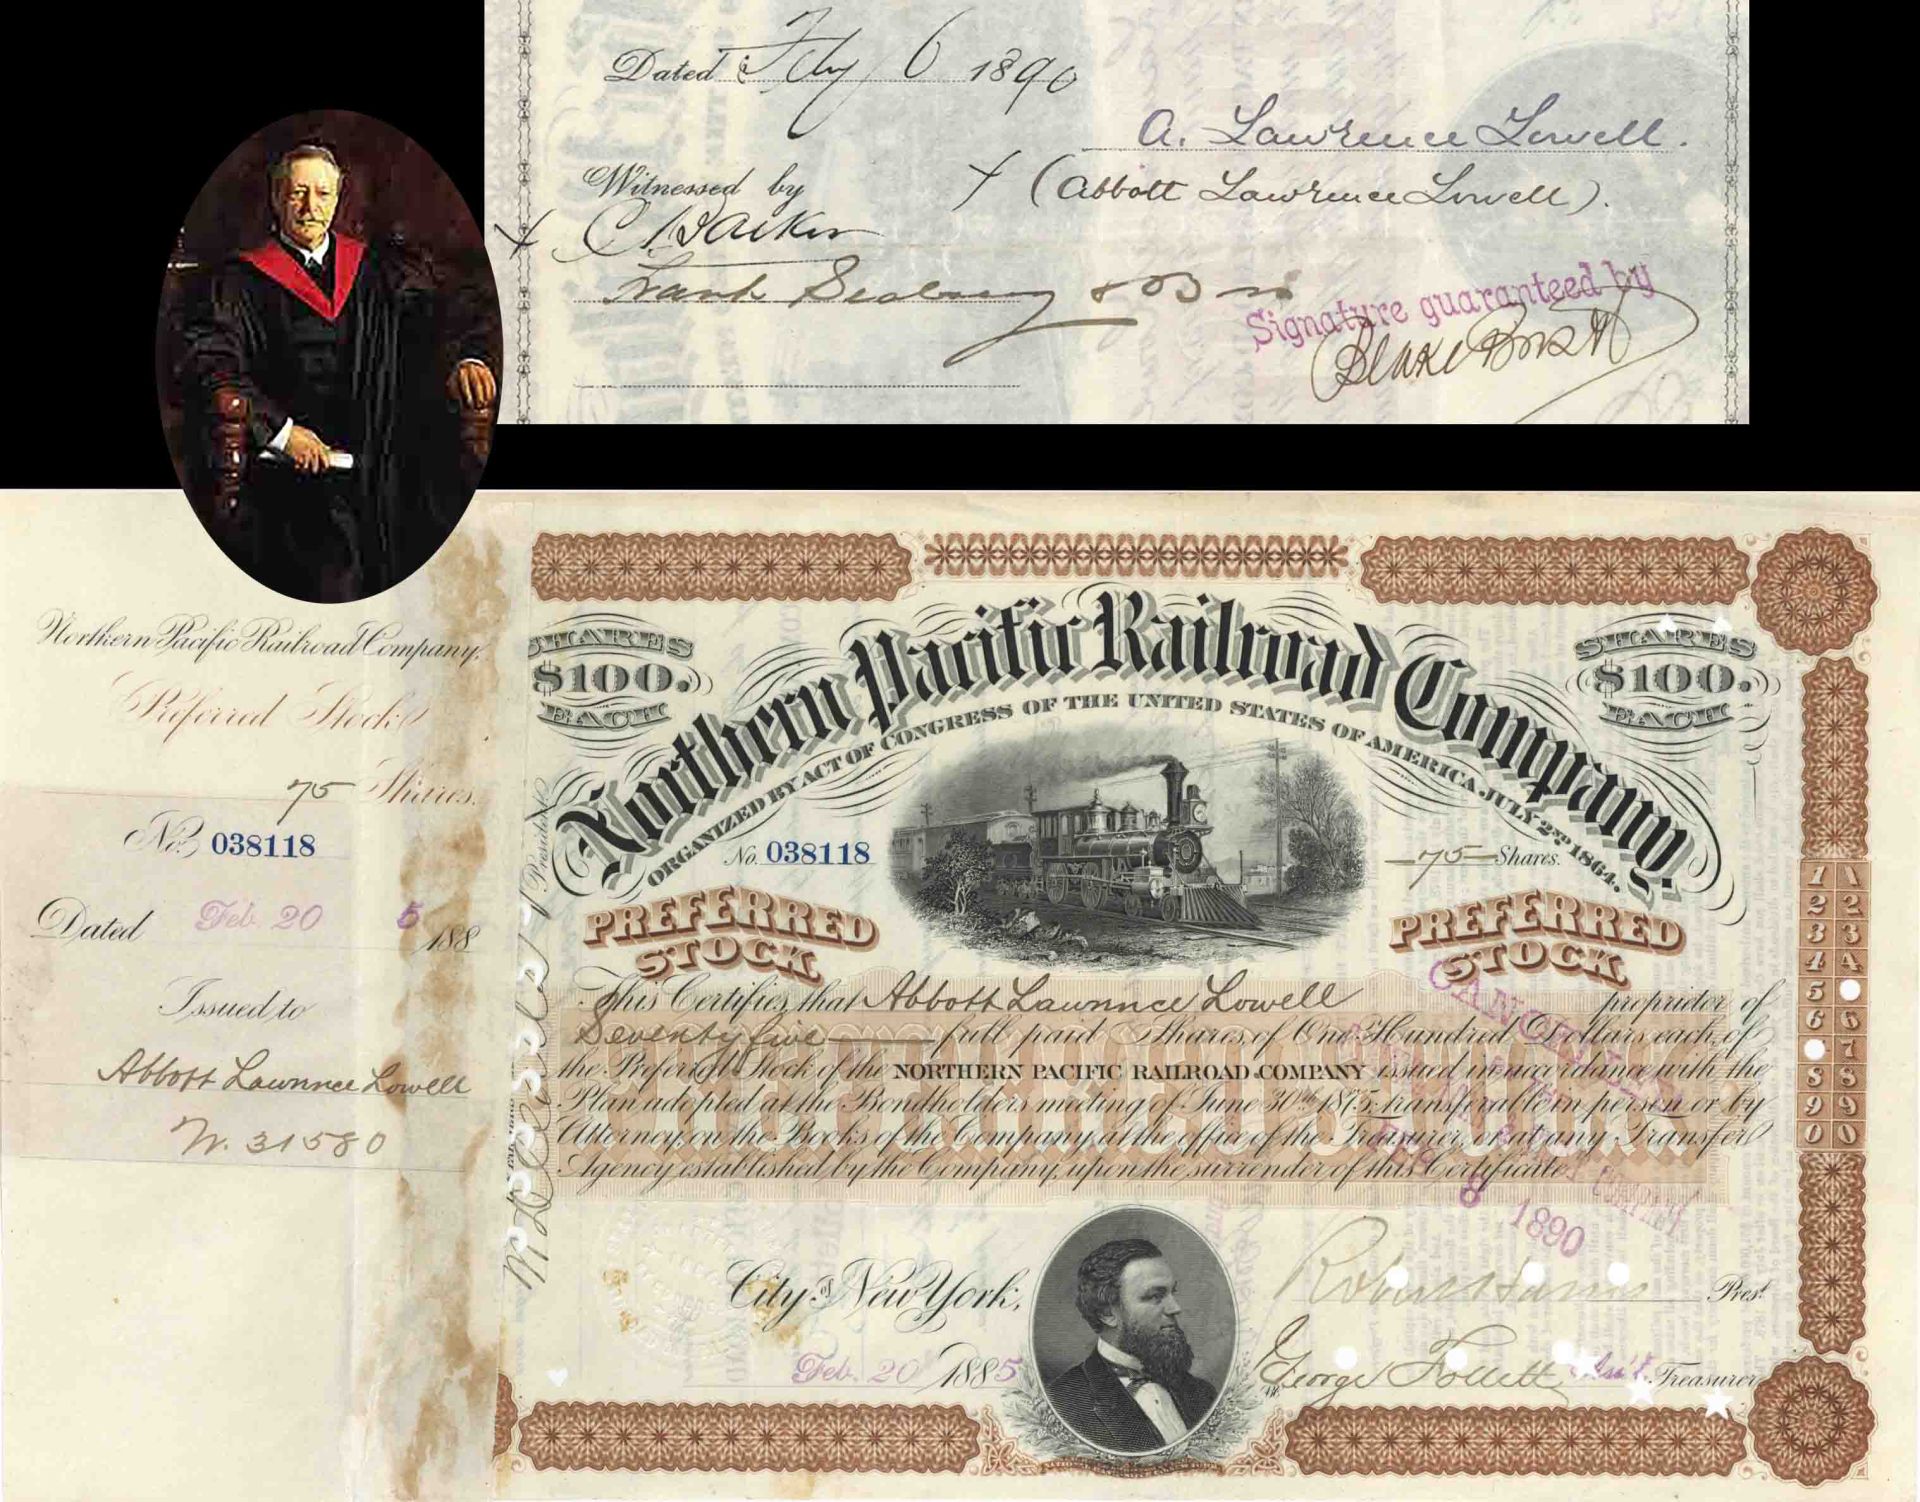 Dated Feby 6 1890
A. Lawrence Lowell.
Witnessed by
(Abbott Lawrence Lowell).
C Barker
Frank
Signature guaranteed by
Blake
Northern Pacific Railroad Company.
Preferred Stock
75 Shares.
No. 038118
Dated Feb. 20 1885
Issued to
Abbott Lawrence Lowell
N. 31580
President
SHARES
$100.
EACH
SHARES
$100.
EACH
Northern Pacific Railroad Company.
ORGANIZED BY ACT OF CONGRESS OF THE UNITED STATES OF AMERICA JULY 2ND 1864.
No. 038118
75 Shares.
PREFERRED STOCK
PREFERRED STOCK
This Certifies that Abbott Lawrence Lowell proprietor of
Seventy five full paid Shares of One Hundred Dollars each, of
the Preferred Stock of the NORTHERN PACIFIC RAILROAD COMPANY issued in accordance with the
Plan adopted at the Bondholders meeting of June 30th 1875, transferable in person or by
Attorney, on the Books of the Company, at the office of the Treasurer, or at any Transfer
Agency established by the Company, upon the surrender of this Certificate.
CANCELLED
8 1890
COMPANY
1 1
2 2
3 3
4 4
5
6 6
7
8 8
9 9
0 0
City of New York,
Feb. 20 1885
Robert Harris Prest.
George Follett Ass't Treasurer